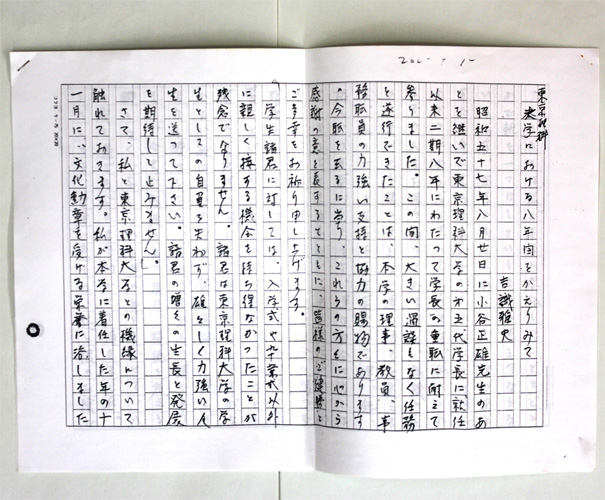 東京理科
本学における八年間をかえりみて
吉識雅夫
昭和五十七年八月廿日に小谷正雄先生のあ
とを継いで東京理科大学の第五代学長に就任
以来二期八年にわたって学長の重職に耐えて
参りました。この間、大きい過誤もなく任務
を遂行できたことは、本学の理事、教員、事
務職員の力強い支援と協力の賜物であります
。今職を去るに当り、これらの方々に心から
感謝の意を表するとともに、皆様のご健勝と
ご多幸をお祈り申し上げます。
学生諸君に対しては、入学式や卒業式以外
に親しく接する機会を持ち得なかったことが
残念でなりません。諸君は東京理科大学の学
生としての自覚を失わず、雄々しく力強い人
生を送って下さい。諸君の増々の生長と発展
を期待して止みません。
さて、私と東京理科大学との機縁について
触れておきます。私が本学に着任した年の十
一月に、文化勲章を受ける栄誉に浴しました